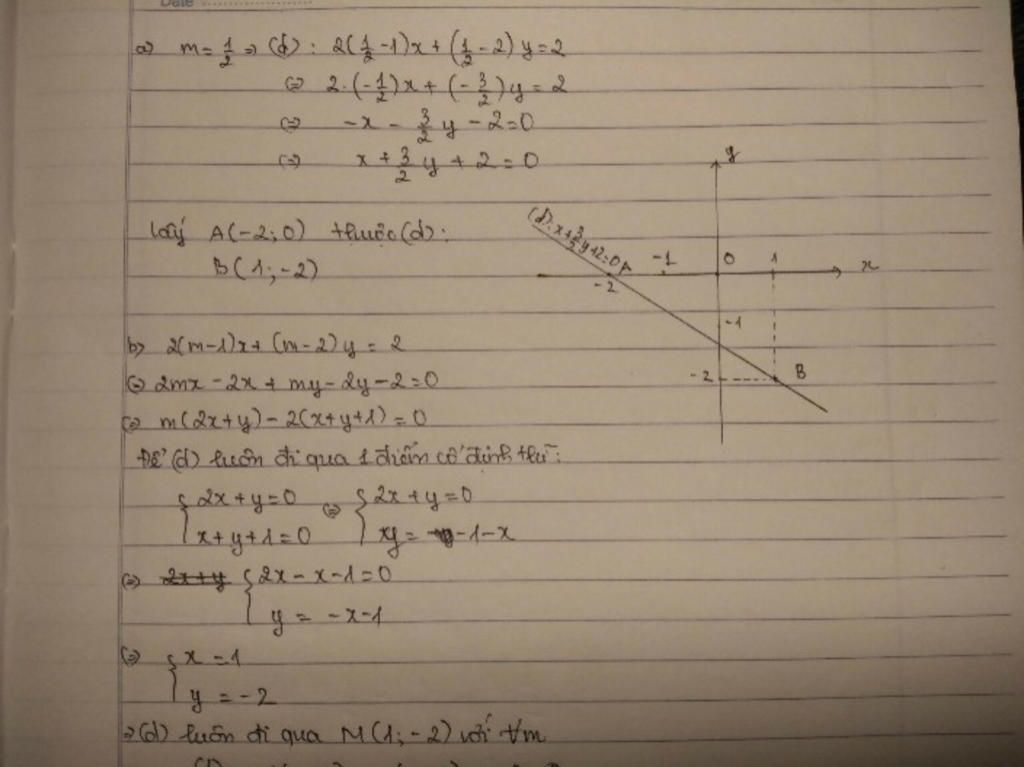 Date
a) m = 1/2 => (d): 2(1/2 - 1)x + (1/2 - 2)y = 2
<=> 2.(-1/2)x + (-3/2)y = 2
<=> -x - 3/2 y - 2 = 0
<=> x + 3/2 y + 2 = 0
lấy A(-2; 0) thuộc (d):
B(1; -2)
y
(d): x + 3/2 y + 2 = 0
A
-2
-1
0
1
x
-1
-2
B
b) 2(m-1)x + (m-2)y = 2
<=> 2mx - 2x + my - 2y - 2 = 0
<=> m(2x+y) - 2(x+y+1) = 0
Để (d) luôn đi qua 1 điểm cố định thì:
{ 2x+y=0 <=> { 2x+y=0
{ x+y+1=0 { y = -1-x
<=> 2x+y { 2x - x - 1 = 0
{ y = -x-1
<=> { x = 1
{ y = -2
=> (d) luôn đi qua M(1; -2) với ∀m